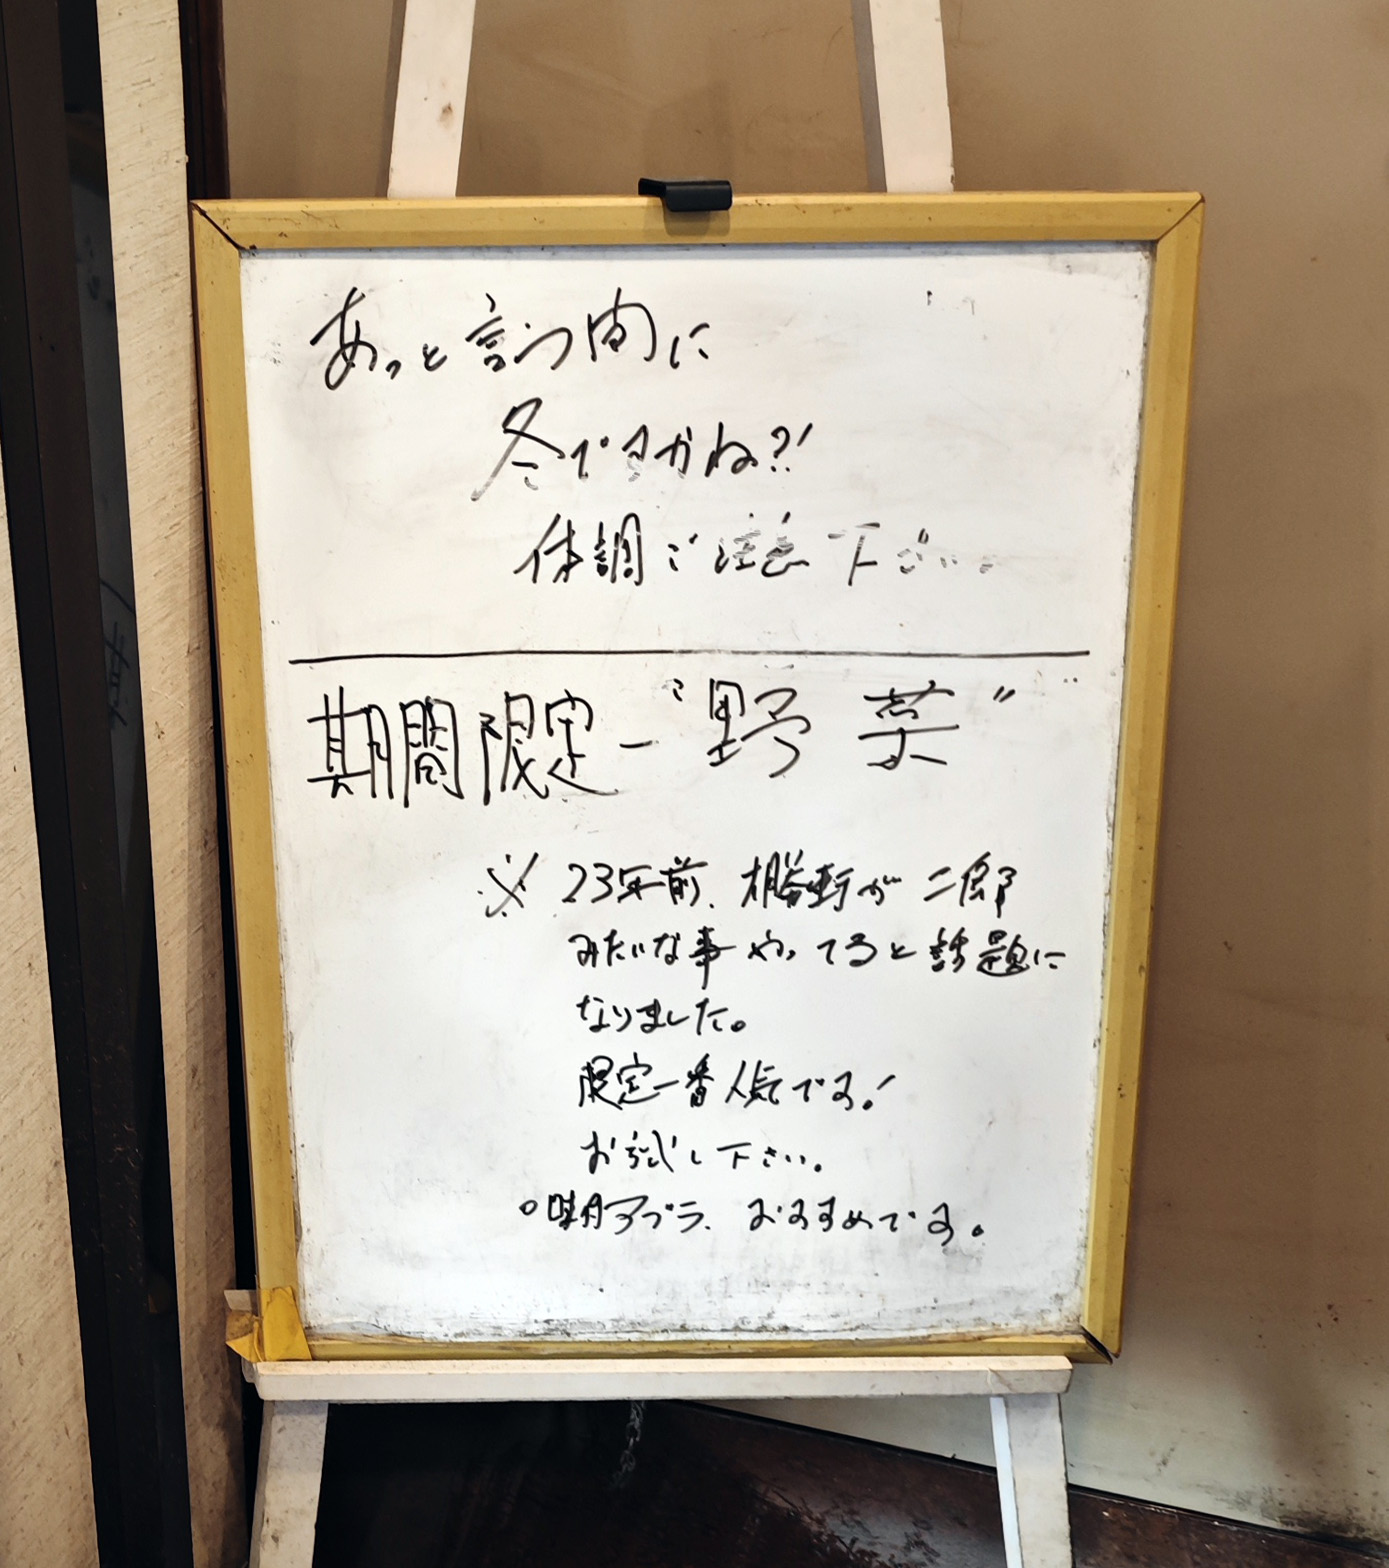 あっと言う間に
冬ですかね?!
体調ご注意下さい。
期間限定-“野菜”
※ 23年前、勝野が二郎
みたいな事やってると話題に
なりました。
限定一番人気です!
お試し下さい。
○味付アブラ、おすすめです。